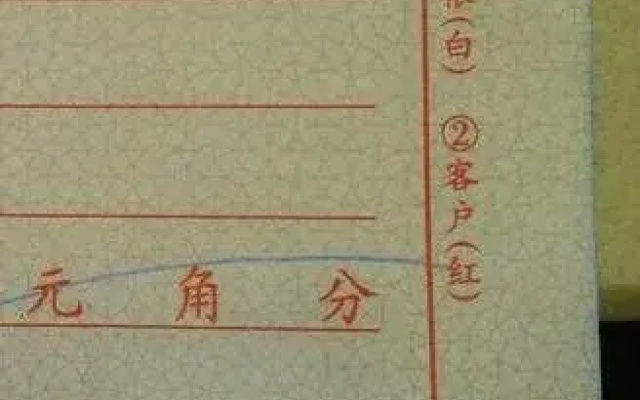 (白) ②客户(红)
元 角 分